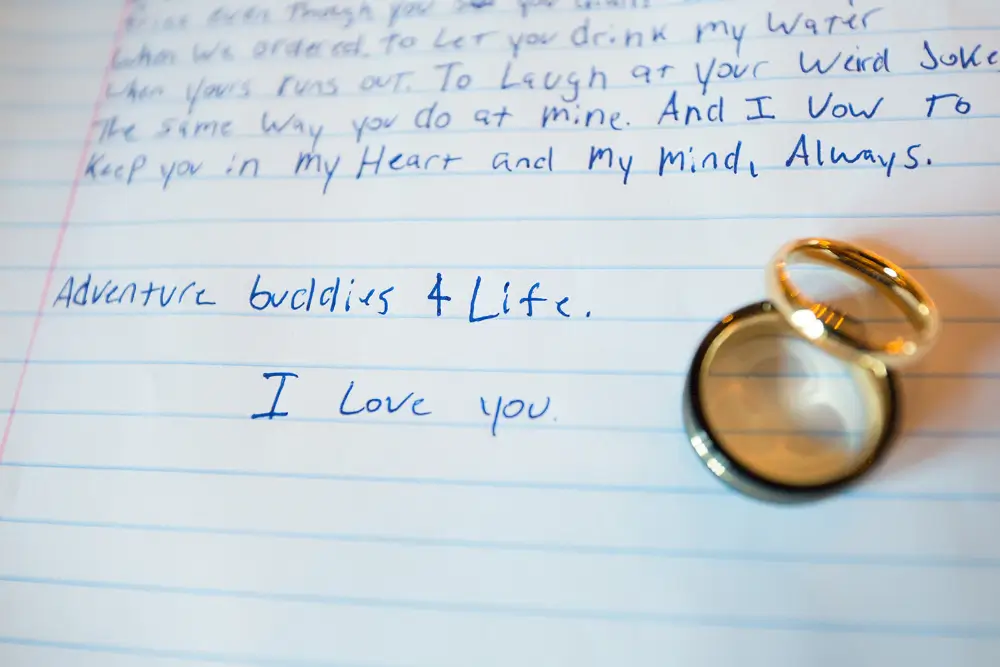 even though you
when we ordered. To Let you drink my Water
when yours runs out. To Laugh at your Weird Joke
The same Way you do at mine. And I Vow To
Keep you in my Heart and my mind, Always.
Adventure buddies 4 Life.
I Love you.